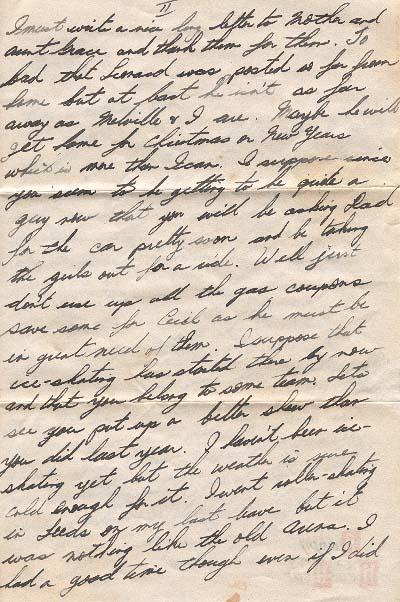 II
I must write a nice long letter to Mother and
aunt Grace and thank them for them. To
bad that Leonard was posted so far from
home but at least he isn't as far
away as Melville & I are. Maybe he will
get home for Christmas or New Years
which is more than I can. I suppose since
you seem to be getting to be quite a
guy now that you will be asking Dad
for the car pretty soon and be taking
the girls out for a ride. Well just
dont use up all the gas coupons
save some for Cecil as he must be
in great need of them. I suppose that
ice-skating has started there by now
and that you belong to some team. Lets
see you put up a better show than
you did last year. I haven't been ice-
skating yet but the weather is sure
cold enough for it. I went roller-skating
in Leeds on my last leave but it
was nothing like the old arena. I
had a good time though even if I did